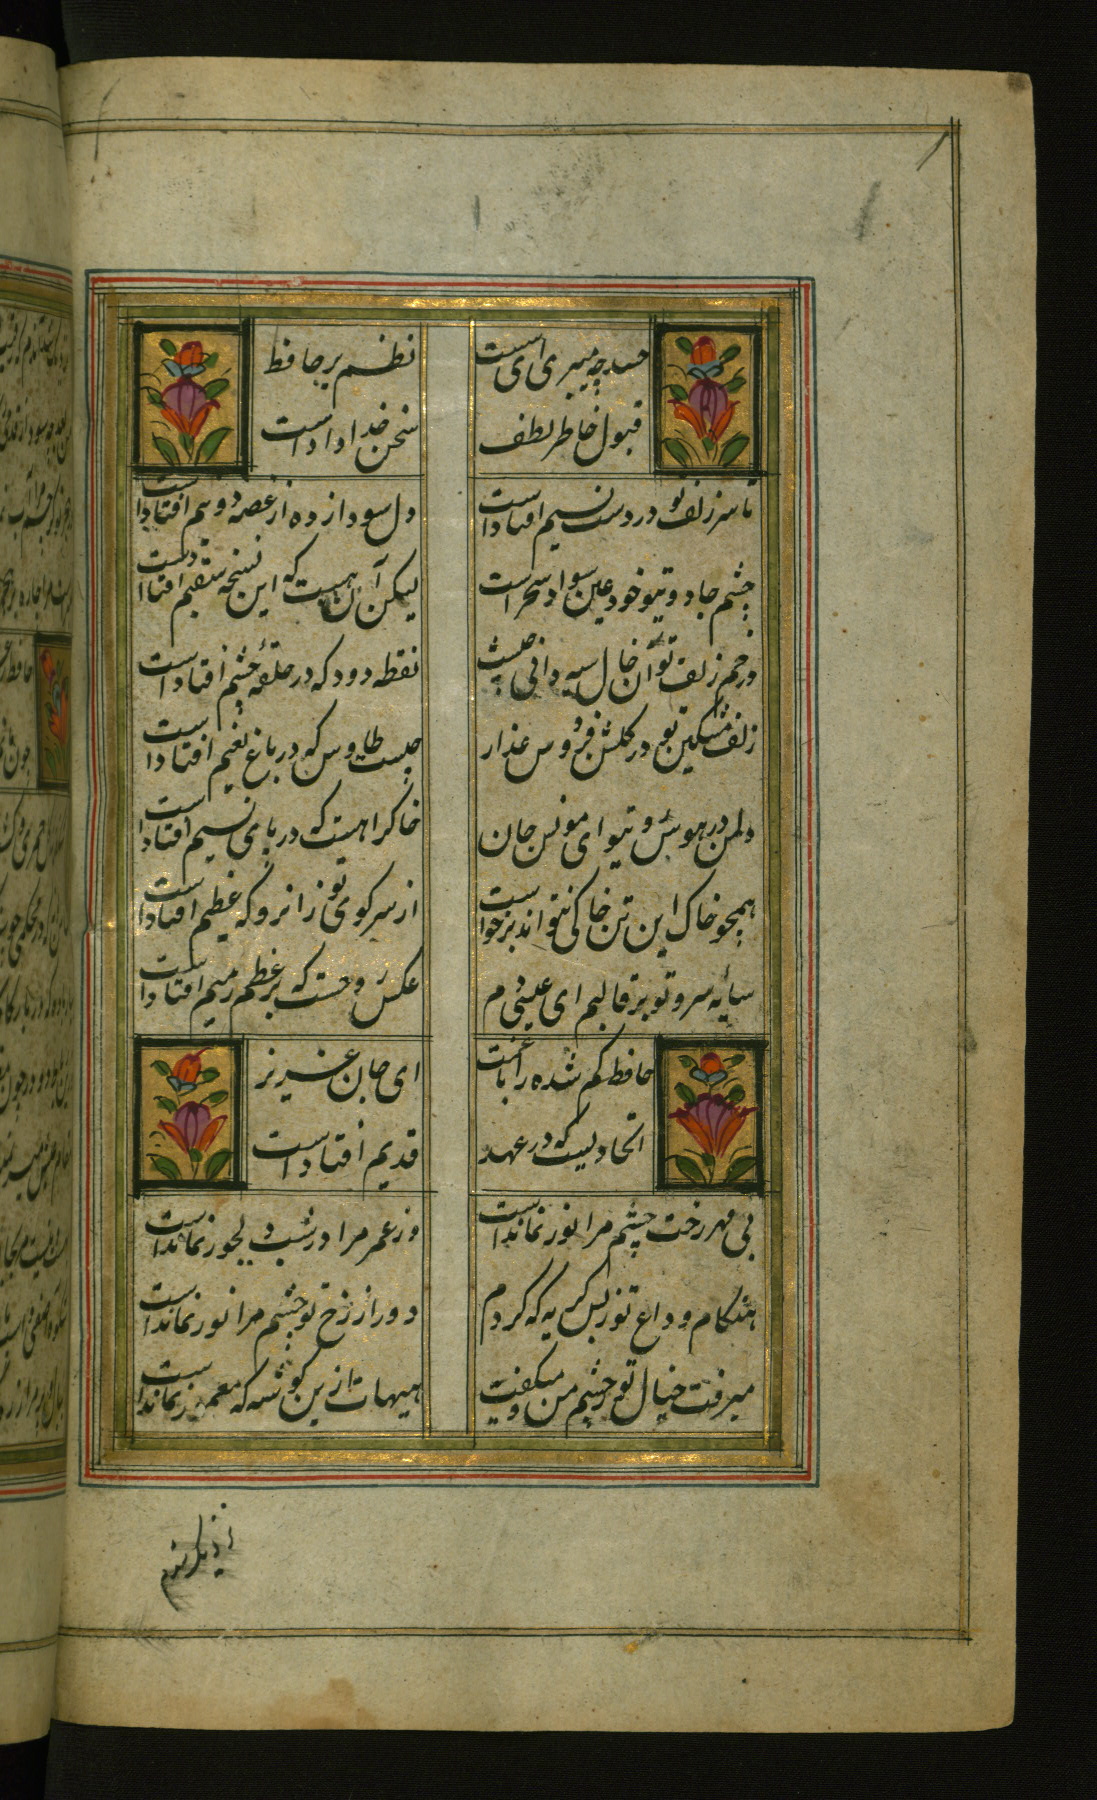 حسد چه میبری ای سست نظم بر حافظ
قبول خاطر لطف سخن خداداد است
تا سر زلف تو در دست نسیم افتاد است دل سودازده از غصه دو نیم افتاد است
چشم جادو تیو خود عین سواد سحر است لیکن آن هست که این نسخه سقیم افتاد است
در خم زلف تو آن خال سیه دانی چیست نقطه دود که در حلقهٔ چشم افتاد است
زلف مشکین تو در گلشن فردوس عذار چیست طاوس که در باغ نعیم افتاد است
دلمن در هوس و تیو ای مونس جان خاکراهست که در پای نسیم افتاد است
همچو خاک این تن خاکی نتواند برخواست از سر کوی تو زانرو که عظیم افتاد است
سایه سرو تو بر قالبم ای عیسی دم عکس وحست که بر عظم رمیم افتاد است
حافظ گم شده را با غمت ای جان عزیز
اتحادیست که در عهد قدیم افتاد است
بی مهر رخت چشم مرا نور نماند است وز عمر مرا در شب دیجور نماند است
هنگام وداع تو ز بس گریه که کردم دور از رخ تو چشم مرا نور نماند است
میرفت خیال تو ز چشم من و میگفت هیهات ازین گوشه که معمور نماند است